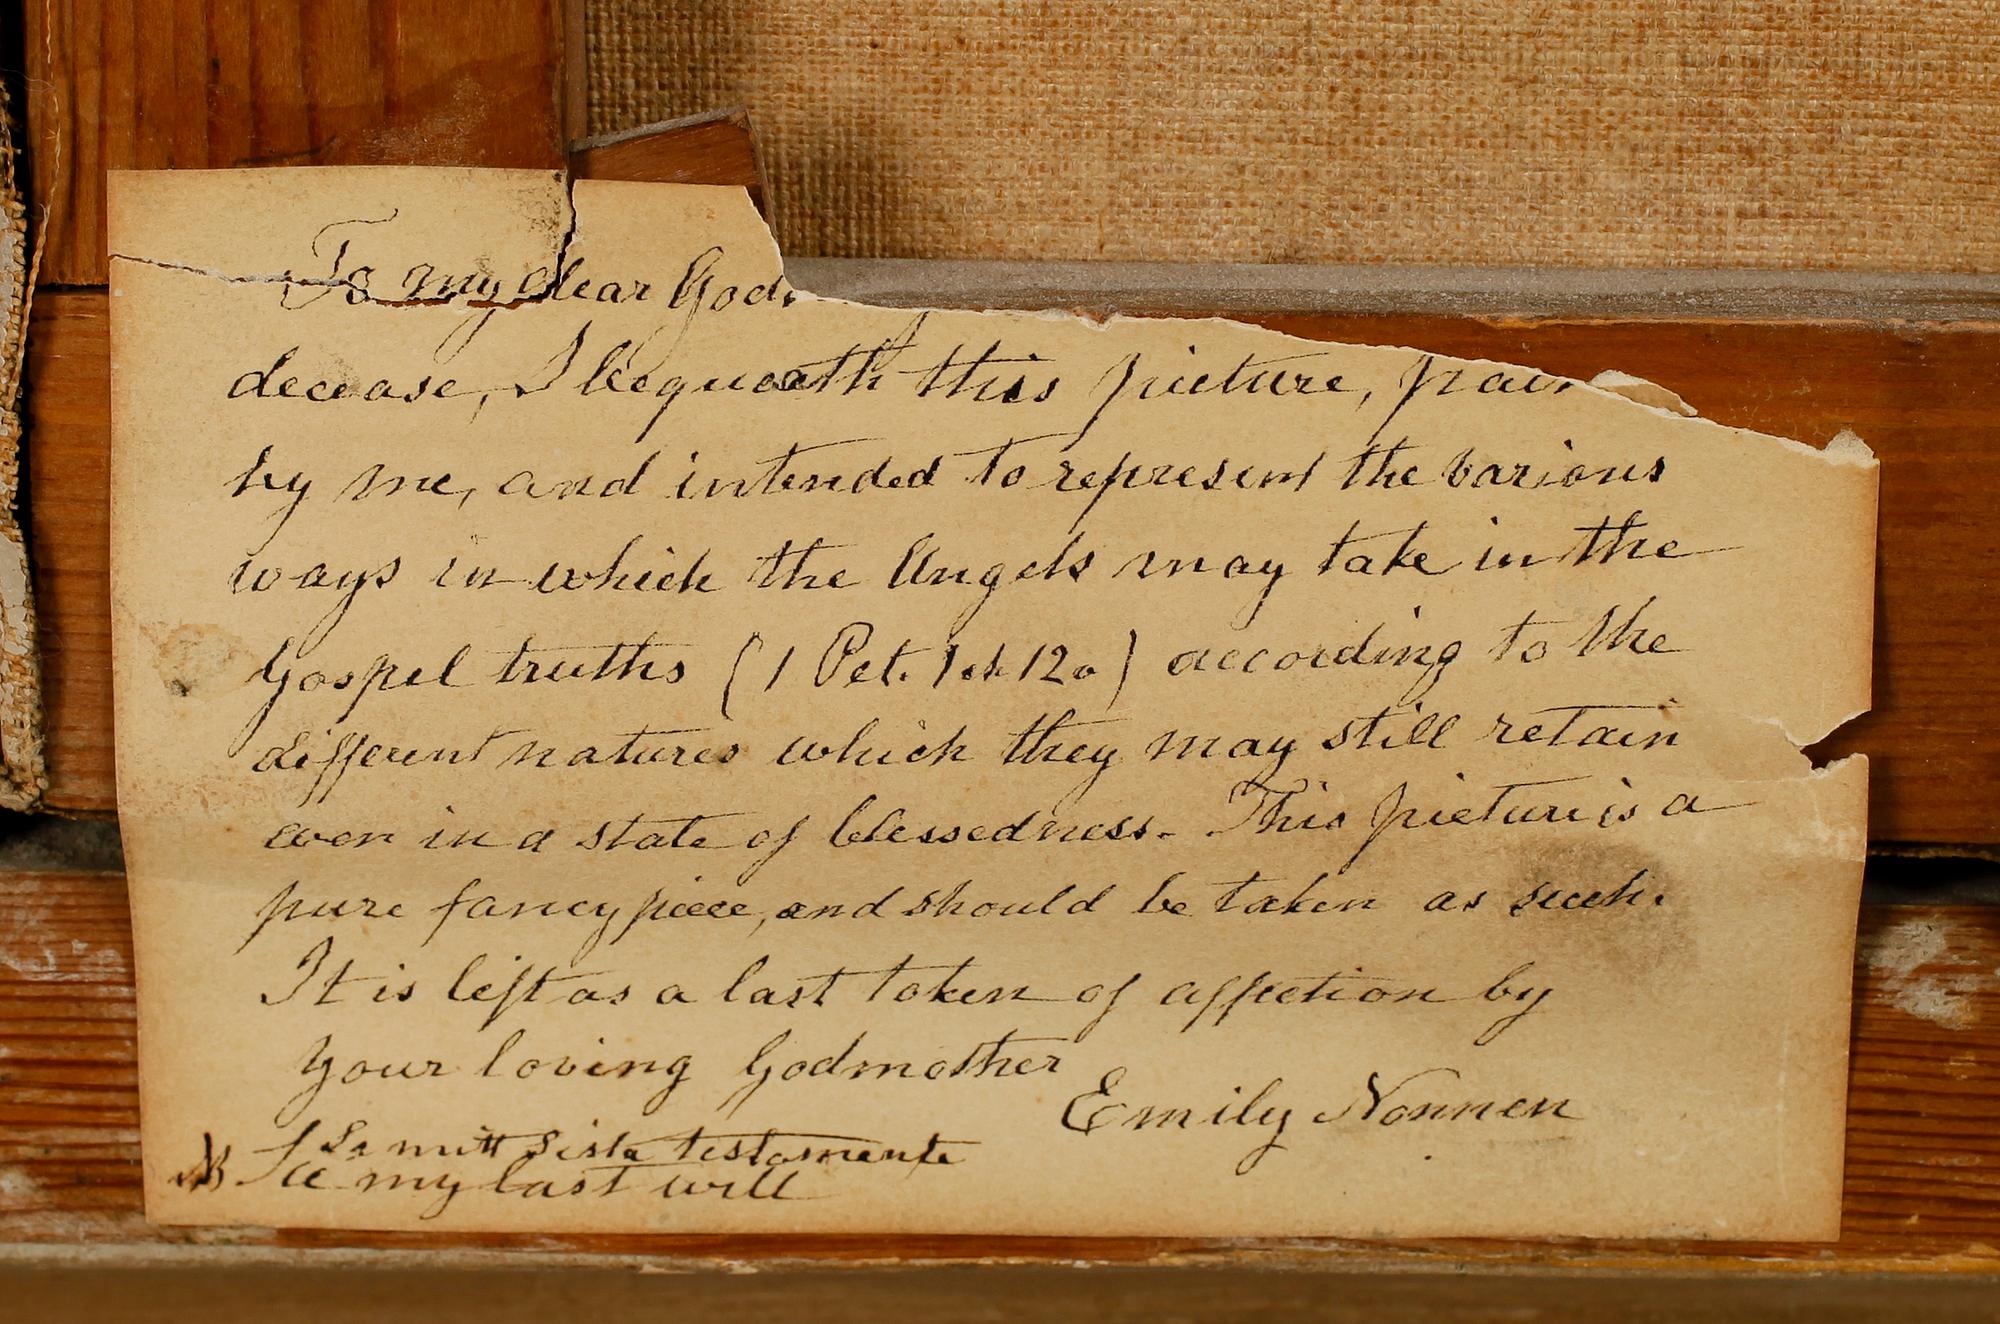 To my dear God
decease, I bequeath this picture, pain
by me, and intended to represent the various
ways in which the Angels may take in the
Gospel truths (1 Pet. 1 ch 12.) according to the
different natures which they may still retain
even in a state of blessedness. This picture is a
pure fancy piece, and should be taken as such.
It is left as a last token of affection by
Your loving Godmother
Emily Nonnen
Se mitt sista testamente
NB See my last will